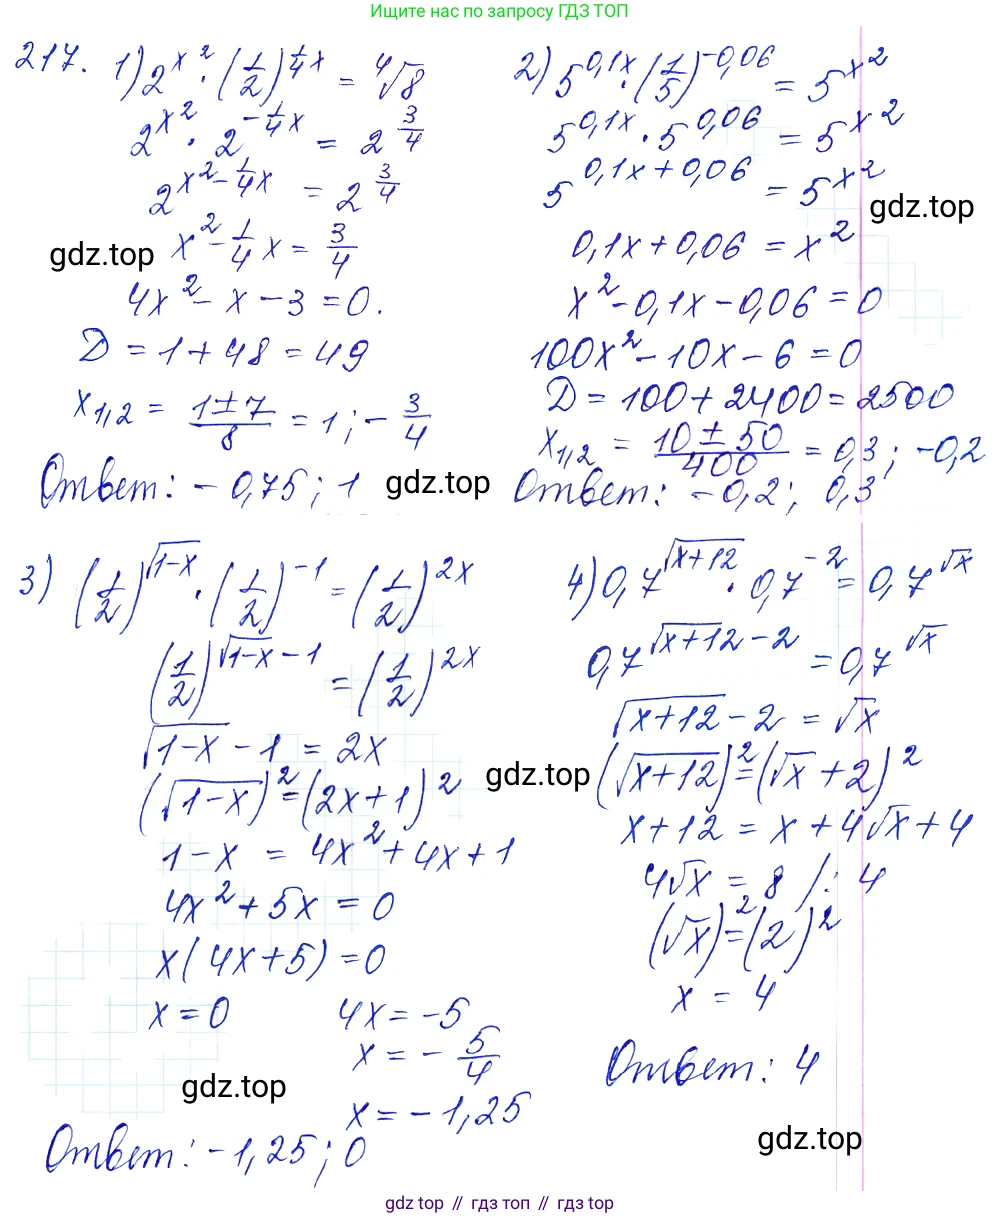 Ищите нас по запросу ГДЗ ТОП
217. 1) 2^{x^2} · (1/2)^{1/4 x} = ∜8
2^{x^2} · 2^{-1/4 x} = 2^{3/4}
2^{x^2 - 1/4 x} = 2^{3/4}
x^2 - 1/4 x = 3/4
gdz.top
4x^2 - x - 3 = 0.
D = 1 + 48 = 49
x_{1,2} = (1 ± 7)/8 = 1; -3/4
Ответ: -0,75; 1
gdz.top
2) 5^{0,1x} · (1/5)^{-0,06} = 5^{x^2}
5^{0,1x} · 5^{0,06} = 5^{x^2}
5^{0,1x + 0,06} = 5^{x^2}
gdz.top
0,1x + 0,06 = x^2
x^2 - 0,1x - 0,06 = 0
100x^2 - 10x - 6 = 0
D = 100 + 2400 = 2500
x_{1,2} = (10 ± 50)/400 = 0,3; -0,2
Ответ: -0,2; 0,3
3) (1/2)^{√(1-x)} · (1/2)^{-1} = (1/2)^{2x}
(1/2)^{√(1-x) - 1} = (1/2)^{2x}
√(1-x) - 1 = 2x
(√(1-x))^2 = (2x+1)^2
gdz.top
1 - x = 4x^2 + 4x + 1
4x^2 + 5x = 0
x(4x+5) = 0
x = 0 4x = -5
x = -5/4
gdz.top
x = -1,25
Ответ: -1,25; 0
4) 0,7^{√(x+12)} · 0,7^{-2} = 0,7^{√x}
0,7^{√(x+12) - 2} = 0,7^{√x}
√(x+12) - 2 = √x
(√(x+12))^2 = (√x + 2)^2
x + 12 = x + 4√x + 4
4√x = 8 /: 4
(√x)^2 = (2)^2
x = 4
Ответ: 4
gdz.top
gdz.top // гдз топ // gdz.top